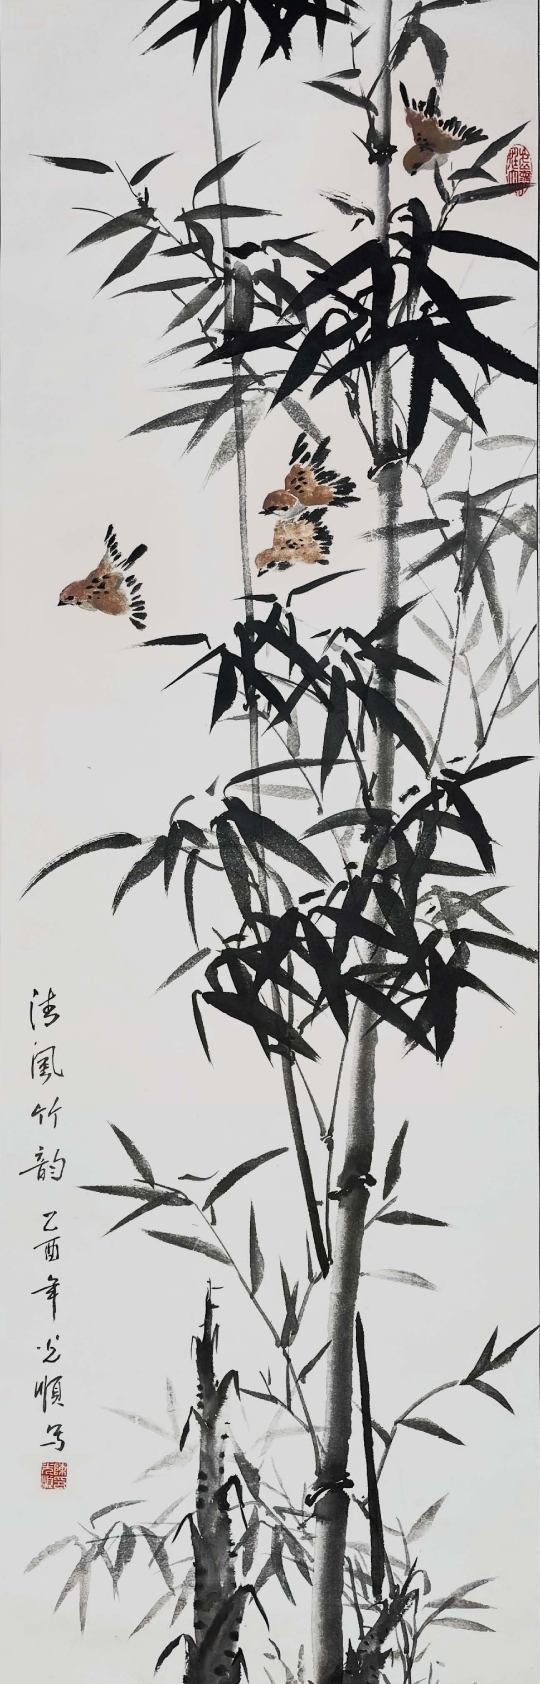 清风竹韵
乙酉年光顺写